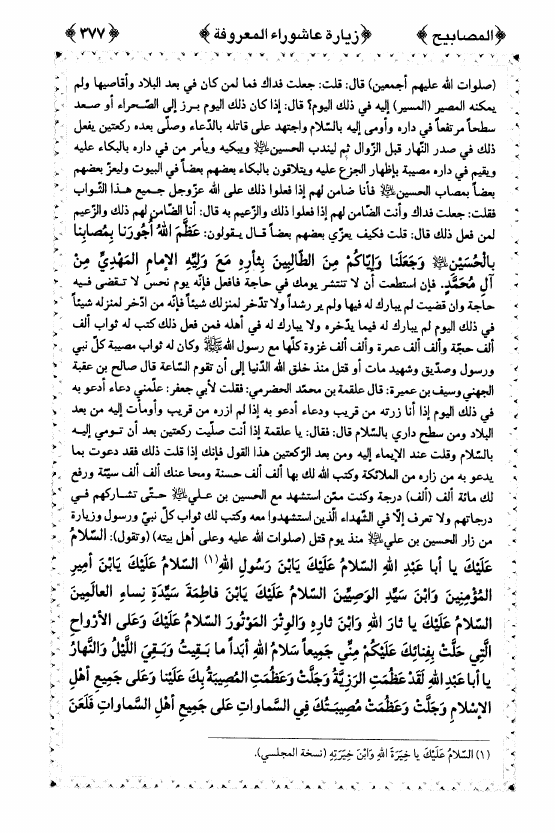 ﴿المصابيح﴾ ﴿زيارة عاشوراء المعروفة﴾ ﴿٣٧٧﴾
(صلوات الله عليهم أجمعين) قال: قلت: جعلت فداك فما لمن كان في بعد البلاد وأقاصيها ولم
يمكنه المصير (المسير) إليه في ذلك اليوم؟ قال: إذا كان ذلك اليوم برز إلى الصّحراء أو صعد
سطحاً مرتفعاً في داره وأومى إليه بالسّلام واجتهد على قاتله بالدّعاء وصلّى بعده ركعتين يفعل
ذلك في صدر النّهار قبل الزّوال ثم ليندب الحسين ﷺ ويبكيه ويأمر من في داره بالبكاء عليه
ويقيم في داره مصيبة بإظهار الجزع عليه ويتلاقون بالبكاء بعضهم بعضاً في البيوت وليعزّ بعضهم
بعضاً بمصاب الحسين ﷺ فأنا ضامن لهم إذا فعلوا ذلك على الله عزّوجل جميع هذا الثّواب
فقلت: جعلت فداك وأنت الضّامن لهم إذا فعلوا ذلك والزّعيم به قال: أنا الضّامن لهم ذلك والزّعيم
لمن فعل ذلك قال: قلت: فكيف يعزّي بعضهم بعضاً قال يقولون: عَظَّمَ اللهُ أُجُورَنا بِمُصابِنا
بِالْحُسَيْنِ ﷺ وَجَعَلَنا وَإِيّاكُمْ مِنَ الطّالِبِينَ بِثارِهِ مَعَ وَلِيِّهِ الإمامِ المَهْدِيِّ مِنْ
آلِ مُحَمَّدٍ. فإن استطعت أن لا تنتشر يومك في حاجة فافعل فإنّه يوم نحس لا تقضى فيه
حاجة وان قضيت لم يبارك له فيها ولم ير رشداً ولا تدّخر لمنزلك شيئاً فإنّه من ادّخر لمنزله شيئاً
في ذلك اليوم لم يبارك له فيما يدّخره ولا يبارك له في أهله فمن فعل ذلك كتب له ثواب ألف
ألف حجّة وألف ألف عمرة وألف ألف غزوة كلّها مع رسول الله ﷺ وكان له ثواب مصيبة كلّ نبي
ورسول وصدّيق وشهيد مات أو قتل منذ خلق الله الدّنيا إلى أن تقوم السّاعة قال صالح بن عقبة
الجهني وسيف بن عميرة: قال علقمة بن محمّد الحضرمي: فقلت لأبي جعفر: علّمني دعاء أدعو به
في ذلك اليوم إذا أنا زرته من قريب ودعاء أدعو به إذا لم ازره من قريب وأومأت إليه من بعد
البلاد ومن سطح داري بالسّلام قال: فقال: يا علقمة إذا أنت صلّيت ركعتين بعد أن تومي إليه
بالسّلام وقلت عند الإيماء إليه ومن بعد الرّكعتين هذا القول فإنك إذا قلت ذلك فقد دعوت بما
يدعو به من زاره من الملائكة وكتب الله لك بها ألف ألف حسنة ومحا عنك ألف ألف سيّئة ورفع
لك مائة ألف (ألف) درجة وكنت ممّن استشهد مع الحسين بن علي ﷺ حتّى تشاركهم في
درجاتهم ولا تعرف إلّا في الشّهداء الّذين استشهدوا معه وكتب لك ثواب كلّ نبيّ ورسول وزيارة
من زار الحسين بن علي ﷺ منذ يوم قتل (صلوات الله عليه وعلى أهل بيته) (وتقول): السَّلامُ
عَلَيْكَ يا أَبا عَبْدِ اللهِ السَّلامُ عَلَيْكَ يَابْنَ رَسُولِ اللهِ(١) السَّلامُ عَلَيْكَ يَابْنَ أَمِيرِ
المُؤْمِنِينَ وَابْنَ سَيِّدِ الوَصِيِّينَ السَّلامُ عَلَيْكَ يَابْنَ فاطِمَةَ سَيِّدَةِ نِساءِ العالَمِينَ
السَّلامُ عَلَيْكَ يا ثارَ اللهِ وَابْنَ ثارِهِ وَالوِتْرَ المَوْتُورَ السَّلامُ عَلَيْكَ وَعَلى الأَرْواحِ
الَّتِي حَلَّتْ بِفِنائِكَ عَلَيْكُمْ مِنِّي جَمِيعاً سَلامُ اللهِ أَبَداً ما بَقِيتُ وَبَقِيَ اللَّيْلُ وَالنَّهارُ
يا أَبا عَبْدِ اللهِ لَقَدْ عَظُمَتِ الرَّزِيَّةُ وَجَلَّتْ وَعَظُمَتِ المُصِيبَةُ بِكَ عَلَيْنا وَعَلى جَمِيعِ أَهْلِ
الإسْلامِ وَجَلَّتْ وَعَظُمَتْ مُصِيبَتُكَ فِي السَّماواتِ عَلى جَمِيعِ أَهْلِ السَّماواتِ فَلَعَنَ
(١) السَّلامُ عَلَيْكَ يا خِيَرَةَ اللهِ وَابْنَ خِيَرَتِهِ (نسخة المجلسي).